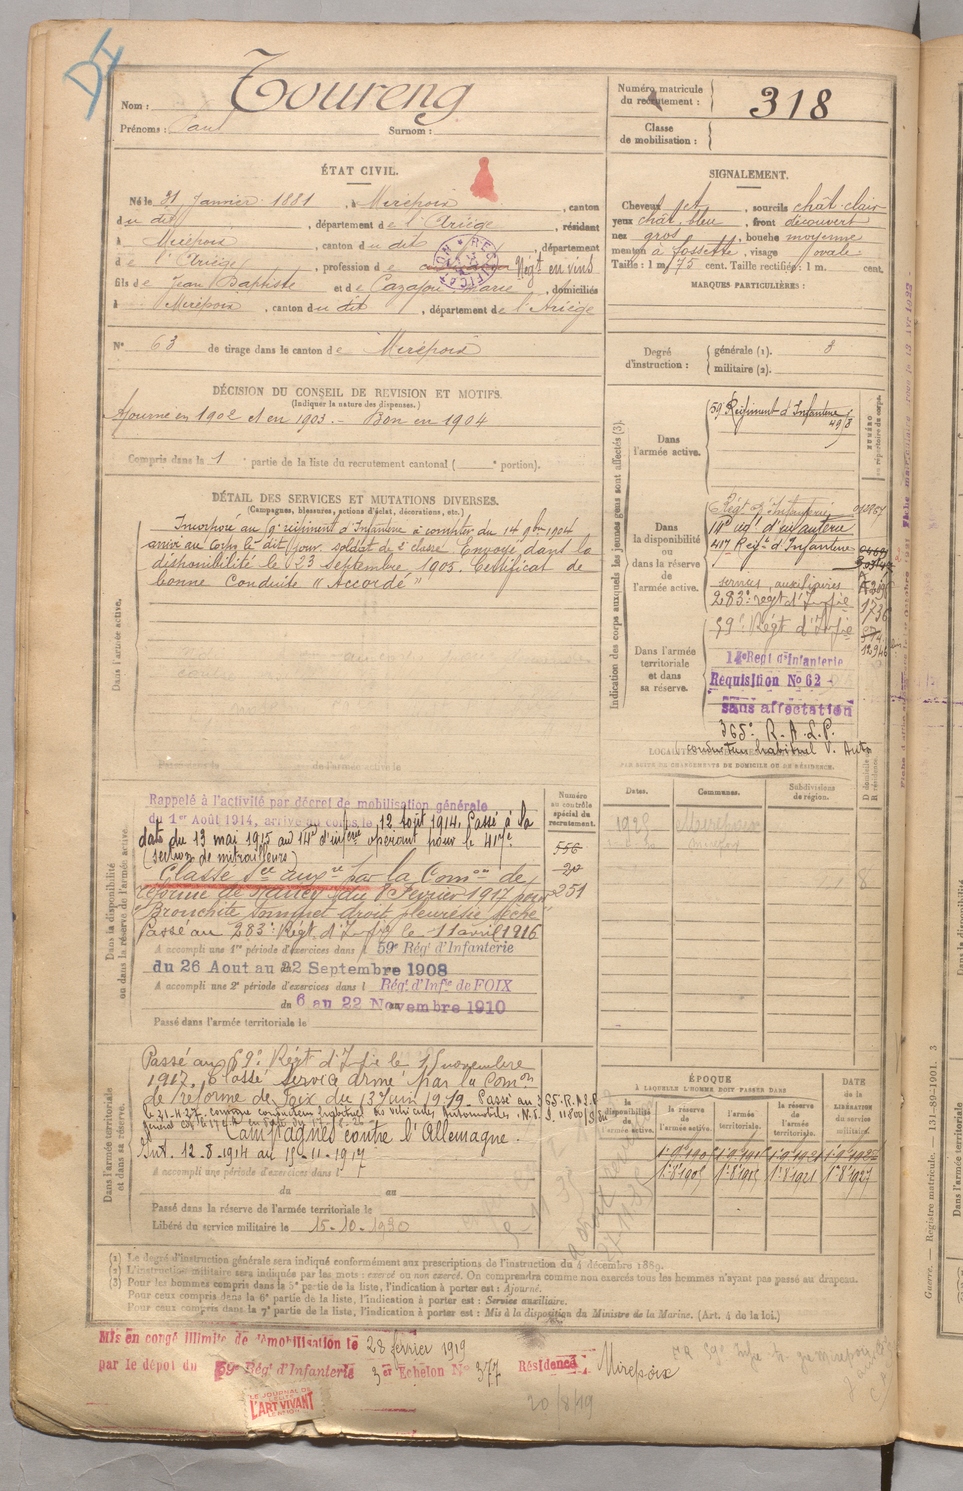 DI
Nom : Toureng
Prénoms : Paul Surnom :
Numéro matricule du recrutement : 318
Classe de mobilisation :
ÉTAT CIVIL.
Né le 31 Janvier 1881, à Mirepoix, canton
du dit, département de l'Ariège, résidant
à Mirepoix, canton du dit, département
de l'Ariège, profession de Négt en vins
fils de Jean Baptiste et de Cazajou Marie, domiciliés
à Mirepoix, canton du dit, département de l'Ariège
RECTIFICATION
N° 63 de tirage dans le canton de Mirepoix
SIGNALEMENT.
Cheveux jet, sourcils chât. clair
yeux chât. bleu, front découvert
nez gros, bouche moyenne
menton à fossette, visage ovale
Taille : 1 m 75 cent. Taille rectifiée : 1 m. cent.
MARQUES PARTICULIÈRES :
Degré d'instruction : générale (1). 3
militaire (2).
DÉCISION DU CONSEIL DE REVISION ET MOTIFS.
(Indiquer la nature des dispenses.)
Ajourné en 1902 et en 1903. - Bon en 1904
Compris dans la 1 e partie de la liste du recrutement cantonal ( e portion).
DÉTAIL DES SERVICES ET MUTATIONS DIVERSES.
(Campagnes, blessures, actions d'éclat, décorations, etc.)
Dans l'armée active.
Incorporé au régiment d'Infanterie à compter du 14 9bre 1904
arrivé au corps le dit jour soldat de 2e classe. Envoyé dans la
disponibilité le 23 Septembre 1905. Certificat de
bonne Conduite "Accordé"
Indication des corps auxquels les jeunes gens sont affectés (3).
NUMÉRO au répertoire du corps.
Dans l'armée active.
59e Régiment d'Infanterie
49/3
Dans la disponibilité ou dans la réserve de l'armée active.
Régt d'Infanterie
14e rég. d'infanterie
417 Régt d'Infanterie
services auxiliaires
283e régt d'Infie
1736
Dans l'armée territoriale et dans sa réserve.
59e Régt d'Infie
14e Regt d'Infanterie
Réquisition No 62
sans affectation
365e R.A.L.P.
conducteur habituel V. Auto
PAR SUITE DE CHANGEMENTS DE DOMICILE OU DE RÉSIDENCE.
Dates. Communes. Subdivisions de région.
D domicile R résidence.
1923 Mirepoix
Dans la disponibilité ou dans la réserve de l'armée active.
Numéro au contrôle spécial du recrutement.
556
20
251
Rappelé à l'activité par décret de mobilisation générale
du 1er Août 1914, arrivé au corps le 12 août 1914. Passé à la
date du 13 mai 1915 au 14e d'infrie opérant pour le 417e
(section de mitrailleurs)
Classé Sce auxre par la Comon de
réforme de Nancy du Février 1917 pour
Bronchite sommet droit pleurésie sèche
Passé au 283e Régt d'Infie le 11 avril 1916
A accompli une 1re période d'exercices dans l 59e Régt d'Infanterie
du 26 Aout au 22 Septembre 1908
A accompli une 2e période d'exercices dans l Régt d'Infie de FOIX
du 6 au 22 Novembre 1910
Passé dans l'armée territoriale le
Dans l'armée territoriale et dans sa réserve.
Passé au 59e Régt d'Infie le 15 novembre
1917. Classé service armé par la Comon
de réforme de Foix du 13 juin 1919. Passé au 365. R.A.L.P
le 21-4-27 comme conducteur habituel des véhicules Automobiles
Campagnes contre l'Allemagne.
Ant. 12-8-1914 au 15-11-1917
A accompli une période d'exercices dans l
du au
Passé dans la réserve de l'armée territoriale le
Libéré du service militaire le 15-10-1930
ÉPOQUE
À LAQUELLE L'HOMME DOIT PASSER DANS
la disponibilité
la réserve de l'armée active.
l'armée territoriale.
la réserve de l'armée territoriale.
DATE de la LIBÉRATION du service militaire.
(1) Le degré d'instruction générale sera indiqué conformément aux prescriptions de l'instruction du 4 décembre 1889.
(2) L'instruction militaire sera indiquée par les mots : exercé ou non exercé. On comprendra comme non exercés tous les hommes n'ayant pas passé au drapeau.
(3) Pour les hommes compris dans la 5e partie de la liste, l'indication à porter est : Ajourné.
Pour ceux compris dans la 6e partie de la liste, l'indication à porter est : Services auxiliaires.
Pour ceux compris dans la 7e partie de la liste, l'indication à porter est : Mis à la disposition du Ministre de la Marine. (Art. 4 de la loi.)
Mis en congé illimité de démobilisation le 28 février 1919
par le dépot du 59e Rég. d'Infanterie 3er Echelon No 377 Résidence Mirepoix
LE JOURNAL DE
L'ART VIVANT
20/8/19
Guerre. — Registre matricule. — 131-89-1901. 3